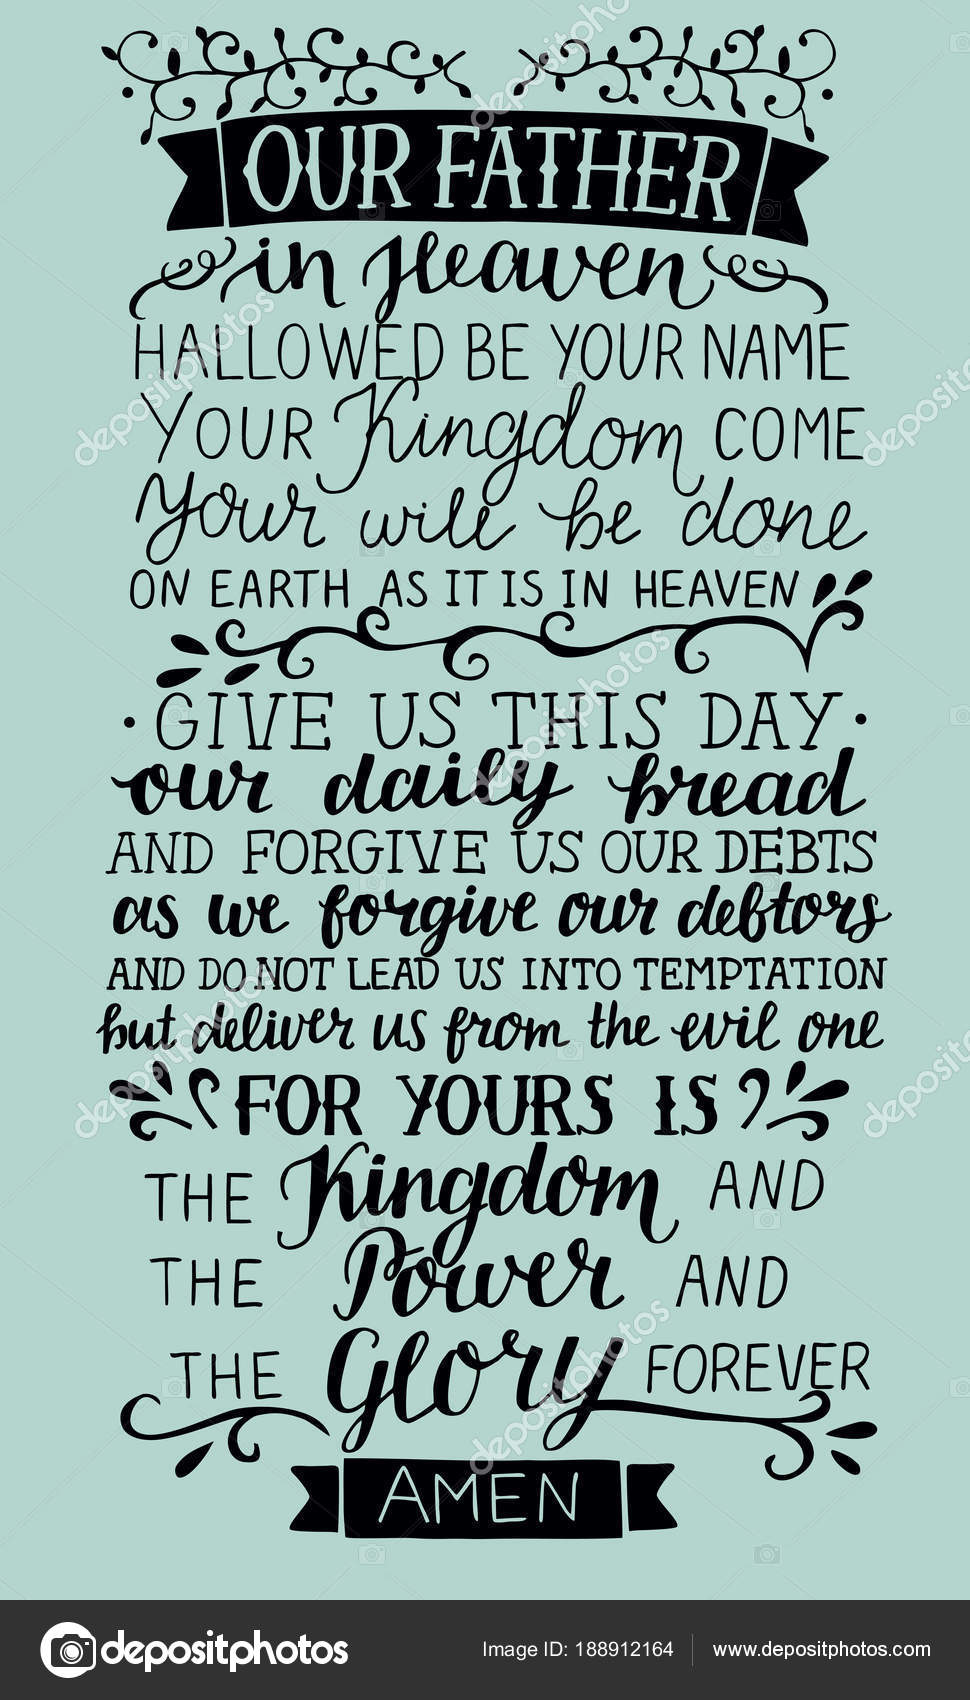 OUR FATHER
in Heaven
HALLOWED BE YOUR NAME
YOUR Kingdom COME
Your will be done
ON EARTH AS IT IS IN HEAVEN
GIVE US THIS DAY
our daily bread
AND FORGIVE US OUR DEBTS
as we forgive our debtors
AND DO NOT LEAD US INTO TEMPTATION
but deliver us from the evil one
FOR YOURS IS
THE Kingdom AND
THE Power AND
THE Glory FOREVER
AMEN
depositphotos Image ID: 188912164 www.depositphotos.com